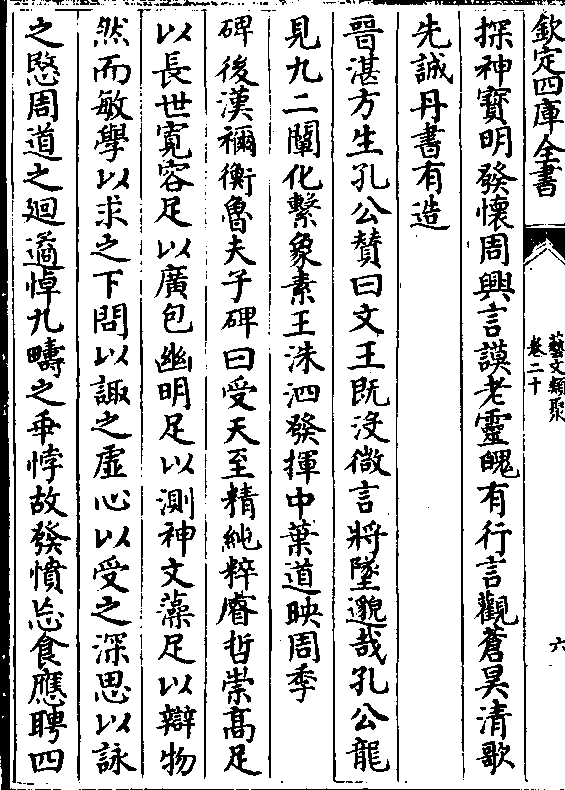 欽定四庫全書
藝文類聚
卷二十
六
探神寳明發懷周興言謨老靈魄有行言觀蒼昊清歌
先誠丹書有造
晉湛方生孔公賛曰文王既沒微言將墜邈哉孔公龍
見九二闡化繫象素王洙泗發揮中葉道映周季
碑後漢禰衡魯夫子碑曰受天至精純粹睿哲崇高足
以長世寛容足以廣包幽明足以測神文藻足以辯物
然而敏學以求之下問以諏之虛心以受之深思以詠
之愍周道之廻遹悼九疇之乖悖故發憤忘食應聘四